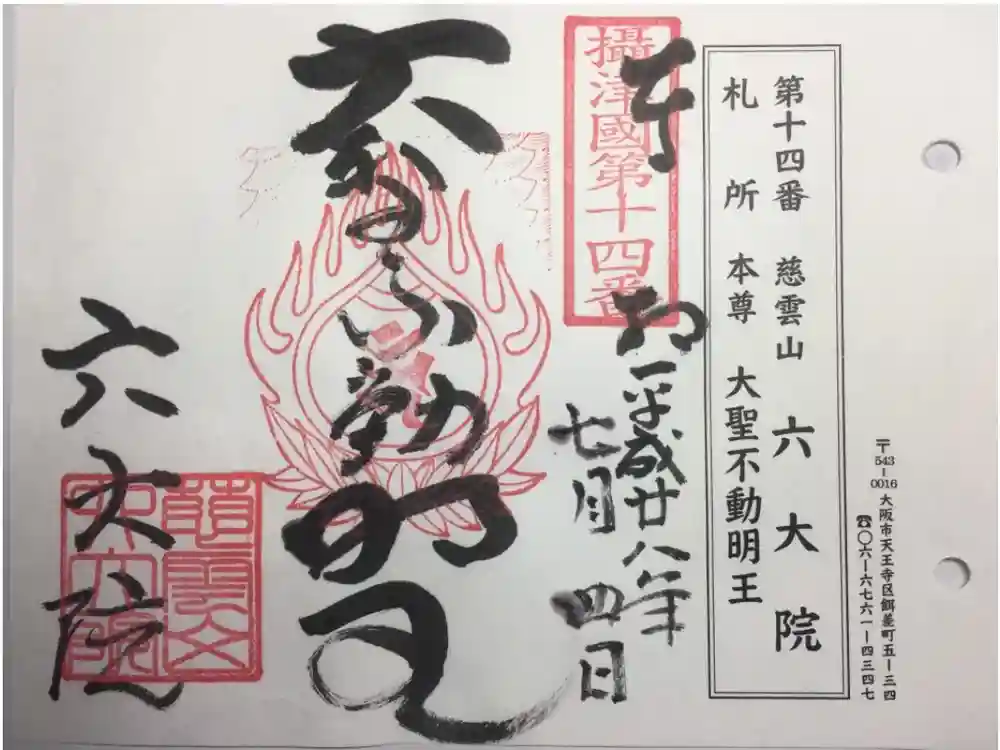 〒543-0016 大阪市天王寺区餌差町五ー三四
☎〇六ー六七六一ー四三四七
第十四番 慈雲山 六大院
札所 本尊 大聖不動明王
攝津國第十四番
奉拝
平成廿八年
七月四日
大聖不動明王
六大院